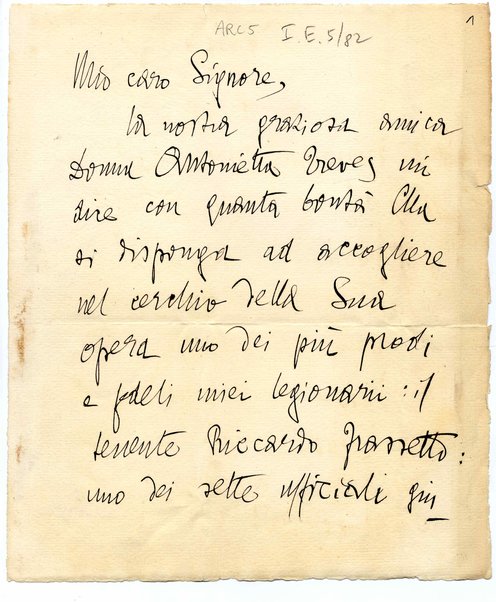 ARC5 I. E. 5/82
1
Mio caro Signore,
la nostra graziosa amica
Donna Antonietta Treves mi
dire con quanta bontà Ella
si disponga ad accogliere
nel cerchio della Sua
opera uno dei più prodi
e fedeli miei legionarii: il
tenente Riccardo Frassetto:
uno dei sette ufficiali giu_